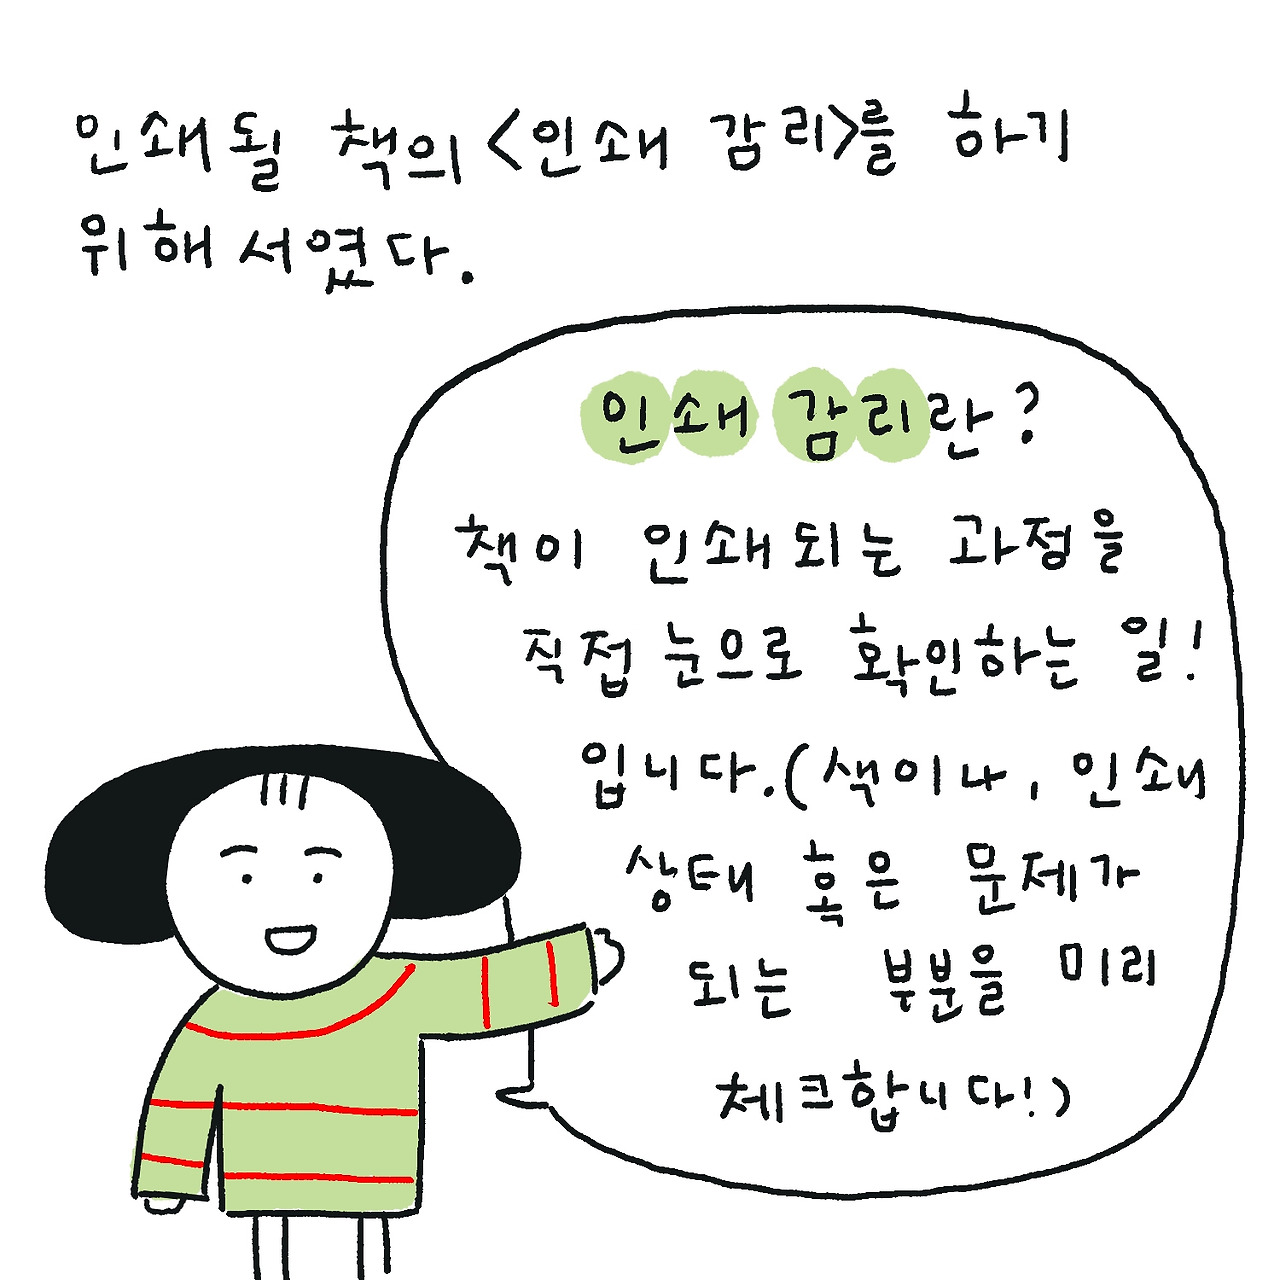 인쇄될 책의 <인쇄 감리>를 하기
위해서였다.
인쇄 감리란?
책이 인쇄되는 과정을
직접 눈으로 확인하는 일!
입니다.(색이나, 인쇄
상태 혹은 문제가
되는 부분을 미리
체크합니다!)